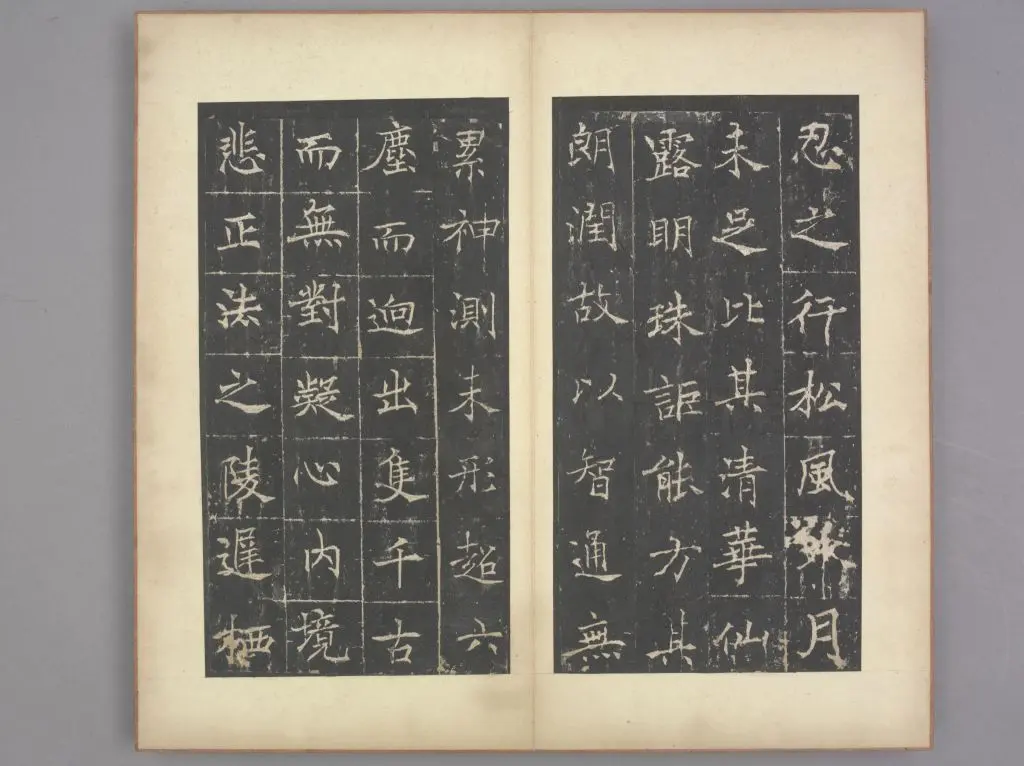 忍之行松風月
未足比其清華仙
露明珠詎能方其
朗潤故以智通無
累神測未形超六
塵而迥出隻千古
而無對凝心內境
悲正法之陵遲栖